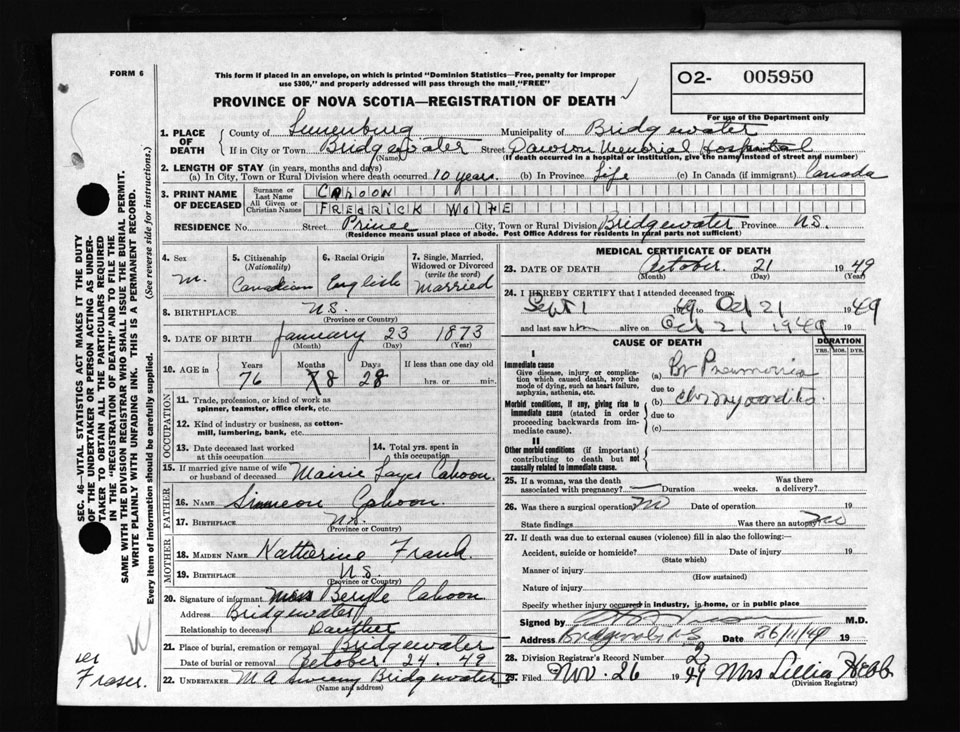 FORM 6
This form if placed in an envelope, on which is printed "Dominion Statistics—Free, penalty for improper
use $300," and properly addressed will pass through the mail "FREE"
02- 005950
For use of the Department only
PROVINCE OF NOVA SCOTIA—REGISTRATION OF DEATH
1. PLACE OF DEATH { County of Lunenburg Municipality of Bridgewater
If in City or Town Bridgewater Street Dawson Memorial Hospital
(Name) (If death occurred in a hospital or institution, give the name instead of street and number)
2. LENGTH OF STAY (in years, months and days)
(a) In City, Town or Rural Division where death occurred 10 years. (b) In Province Life (c) In Canada (if immigrant) Canada
3. PRINT NAME OF DECEASED { Surname or Last Name CAHOON
All Given or Christian Names FREDRICK
RESIDENCE No. Street Prince City, Town or Rural Division Bridgewater Province N.S.
(Residence means usual place of abode. Post Office Address for residents in rural parts not sufficient)
4. Sex M.
5. Citizenship (Nationality) Canadian
6. Racial Origin English
7. Single, Married, Widowed or Divorced (write the word) Married
8. BIRTHPLACE N.S.
(Province or Country)
9. DATE OF BIRTH January 23 1873
(Month) (Day) (Year)
10. AGE in { Years 76 Months 8 Days 28 If less than one day old hrs. or min.
OCCUPATION
11. Trade, profession or kind of work as spinner, teamster, office clerk, etc.
12. Kind of industry or business, as cotton-mill, lumbering, bank, etc.
13. Date deceased last worked at this occupation
14. Total yrs. spent in this occupation
15. If married give name of wife or husband of deceased Maisie Cahoon
FATHER
16. NAME Simeon Cahoon
17. BIRTHPLACE N.S.
(Province or Country)
MOTHER
18. MAIDEN NAME Katherine Frank
19. BIRTHPLACE N.S.
(Province or Country)
20. Signature of informant Beryle Cahoon
Address Bridgewater
Relationship to deceased Dauther
21. Place of burial, cremation or removal Bridgewater
Date of burial or removal October 24. 49
22. UNDERTAKER M A Sweeny Bridgewater
(Name and address)
MEDICAL CERTIFICATE OF DEATH
23. DATE OF DEATH October 21 1949
(Month) (Day) (Year)
24. I HEREBY CERTIFY that I attended deceased from
Sept 1 1949 to Oct 21 1949
and last saw him alive on Oct 21 1949 19
CAUSE OF DEATH
DURATION
YRS. MOS. DYS.
I
Immediate cause
Give disease, injury or complication which caused death, NOT the mode of dying, such as heart failure, asphyxia, asthenia, etc.
(a) Br Pneumonia
due to
Morbid conditions, if any, giving rise to immediate cause (stated in order proceeding backwards from immediate cause).
(b) Chr Myocarditis.
due to
(c)
II
Other morbid conditions (if important) contributing to death but not causally related to immediate cause.
25. If a woman, was the death associated with pregnancy? — Duration weeks. Was there a delivery?
26. Was there a surgical operation? No Date of operation 19
State findings Was there an autopsy? No
27. If death was due to external causes (violence) fill in also the following:—
Accident, suicide or homicide? Date of injury 19
(State which)
Manner of injury
(How sustained)
Nature of injury
Specify whether injury occurred in industry, in home, or in public place
Signed by M.D.
Address Bridgewater N.S Date 26/11/49 19
28. Division Registrar's Record Number 2
29. Filed Nov. 26 1949 Mrs Lillia Hebb
(Division Registrar)
SEC. 46—VITAL STATISTICS ACT MAKES IT THE DUTY
OF THE UNDERTAKER OR PERSON ACTING AS UNDER-
TAKER TO OBTAIN ALL THE PARTICULARS REQUIRED
IN THE "REGISTRATION OF DEATH" AND TO FILE THE
SAME WITH THE DIVISION REGISTRAR WHO SHALL ISSUE THE BURIAL PERMIT.
WRITE PLAINLY WITH UNFADING INK. THIS IS A PERMANENT RECORD.
Every item of information should be carefully supplied. (See reverse side for instructions.)
W
Fraser.